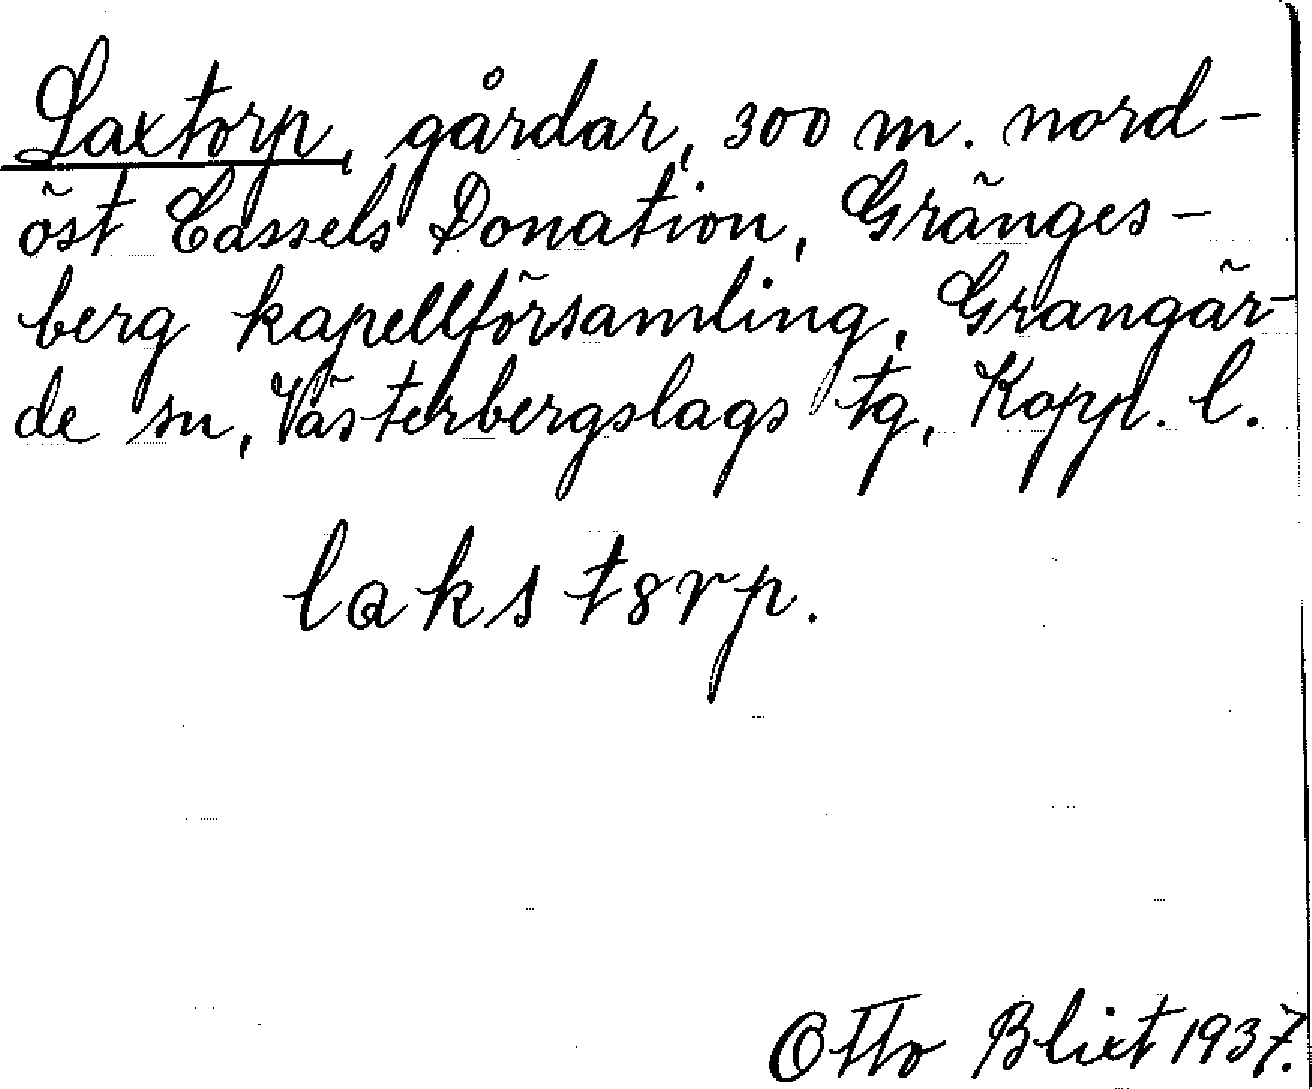 Laxtorp, gårdar, 300 m. nord-
öst Cassels Donation, Gränges-
berg kapellförsamling, Grangär-
de sn, Västerbergslags tg, Kopp. l.
lakstɞrp.
Otto Blixt 1937.